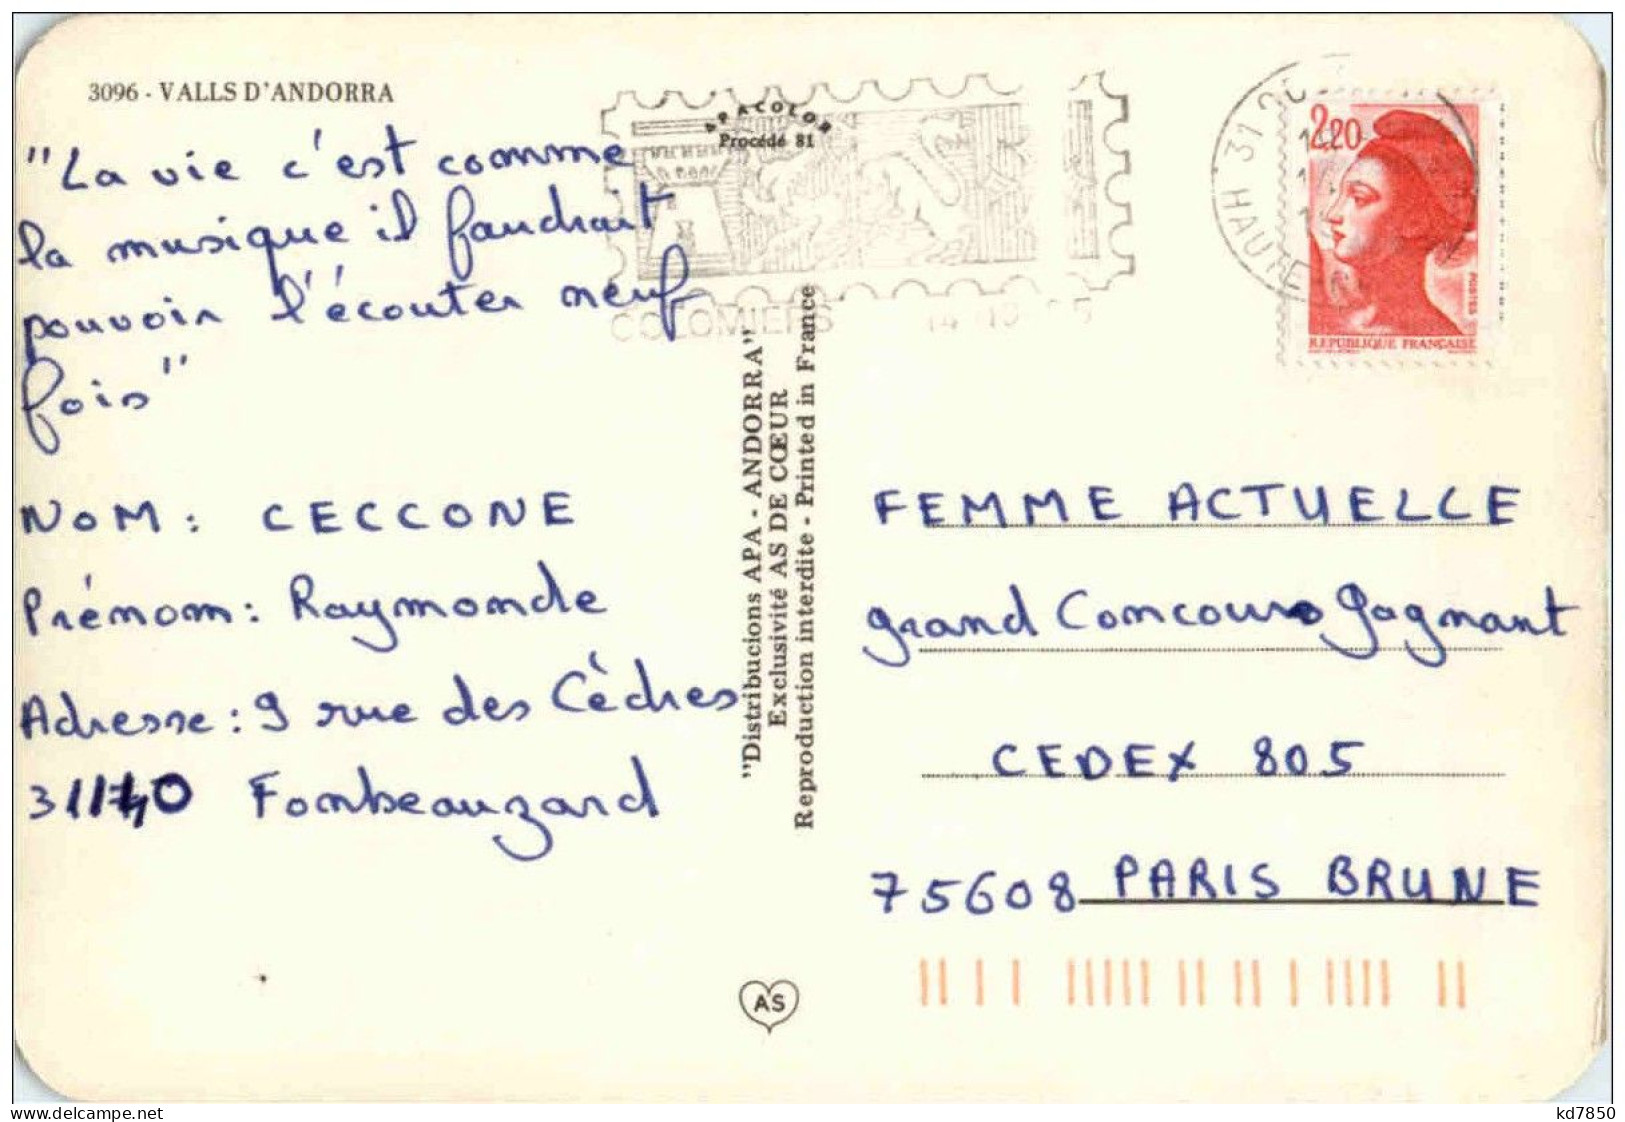 3096 - VALLS D'ANDORRA
APACOLOR
Procédé 81
"La vie c'est comme
la musique il faudrait
pouvoir l'écouter neuf
fois"
NOM: CECCONE
Prénom: Raymonde
Adresse: 9 rue des Cèdres
31140 Fonbeauzard
COLOMIERS
"Distribucions APA - ANDORRA"
Exclusivité AS DE CŒUR
Reproduction interdite - Printed in France
AS
31
HAUTE
2,20
POSTES
REPUBLIQUE FRANÇAISE
FEMME ACTUELLE
grand Concours Gagnant
CEDEX 805
75608 PARIS BRUNE
delcampe.net
kd7850